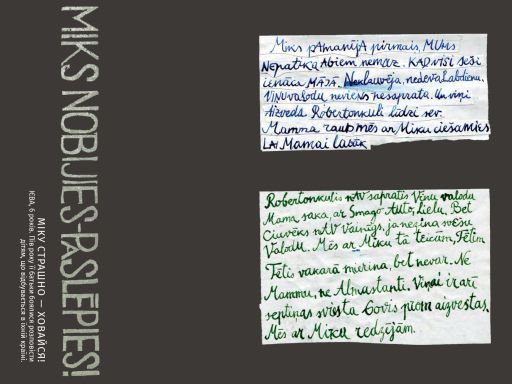 MIKS NOBIJIES-PASLĒPIES!
МІКУ СТРАШНО — ХОВАЙСЯ!
ІЄВА, 6 років. Пів року її батьки боялися розповісти
дітям, що відбувається в їхній країні.
Miks pAmanījA pirmais, MUMs
Nepatika Abiem nemaz. KAD viņi seši
ienāca MĀJĀ. Neklauvēja, nedeva Labdienu.
Viņu valodu neviens nesaprata. Un viņi
Aizveda Robertonkuli līdzi sev.
Mamma raud mēs ar Miku ciešamies
LAI Mamai labāk
Robertonkulis nAV sapratis Viņu valodu
Mama saka, ar Smago Auto, lielu. Bet
nAV vainīgs, ja nezina svešu
Valodu. Mēs ar Miku tā teicām, Tētim
Tētis vakarā mierina, bet nevar. Ne
Mammu, ne Almastanti. Viņai ir arī
septiņas sviesta Govis prom aizvestas.
Mēs ar Miku redzējām.